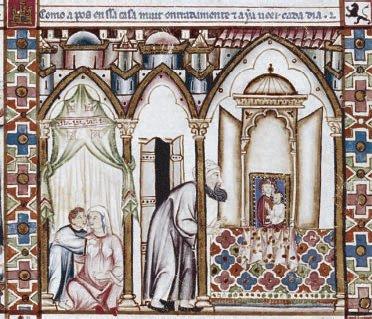 Como a pos en ssa casa muit onrradamente ⁊ a ya ueer cada dia.